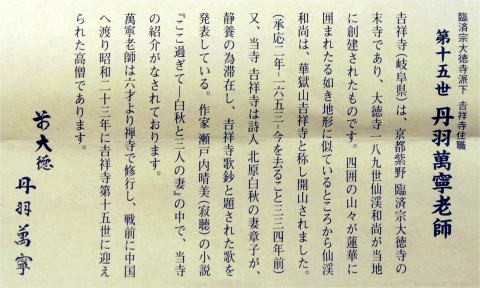 臨済宗大徳寺派下 吉祥寺住職
第十五世 丹羽萬寧老師
吉祥寺(岐阜県)は、京都紫野 臨済宗大徳寺の
末寺であり、大徳寺一八九世仙渓和尚が当地
に創建されたものです。四囲の山々が蓮華に
囲まれたる如き地形に似ているところから仙渓
和尚は、華獄山吉祥寺と称し開山されました。
(承応二年-一六五三-今を去ること三三四年前)
又、当寺 吉祥寺は詩人 北原白秋の妻章子が、
静養の為滞在し、吉祥寺歌鈔と題された歌を
発表している。作家 瀬戸内晴美(寂聴)の小説
『ここ過ぎて—白秋と三人の妻』の中で、当寺
の紹介がなされております。
萬寧老師は六才より禅寺で修行し、戦前に中国
へ渡り昭和二十三年に吉祥寺第十五世に迎え
られた高僧であります。
前大徳
丹羽萬寧